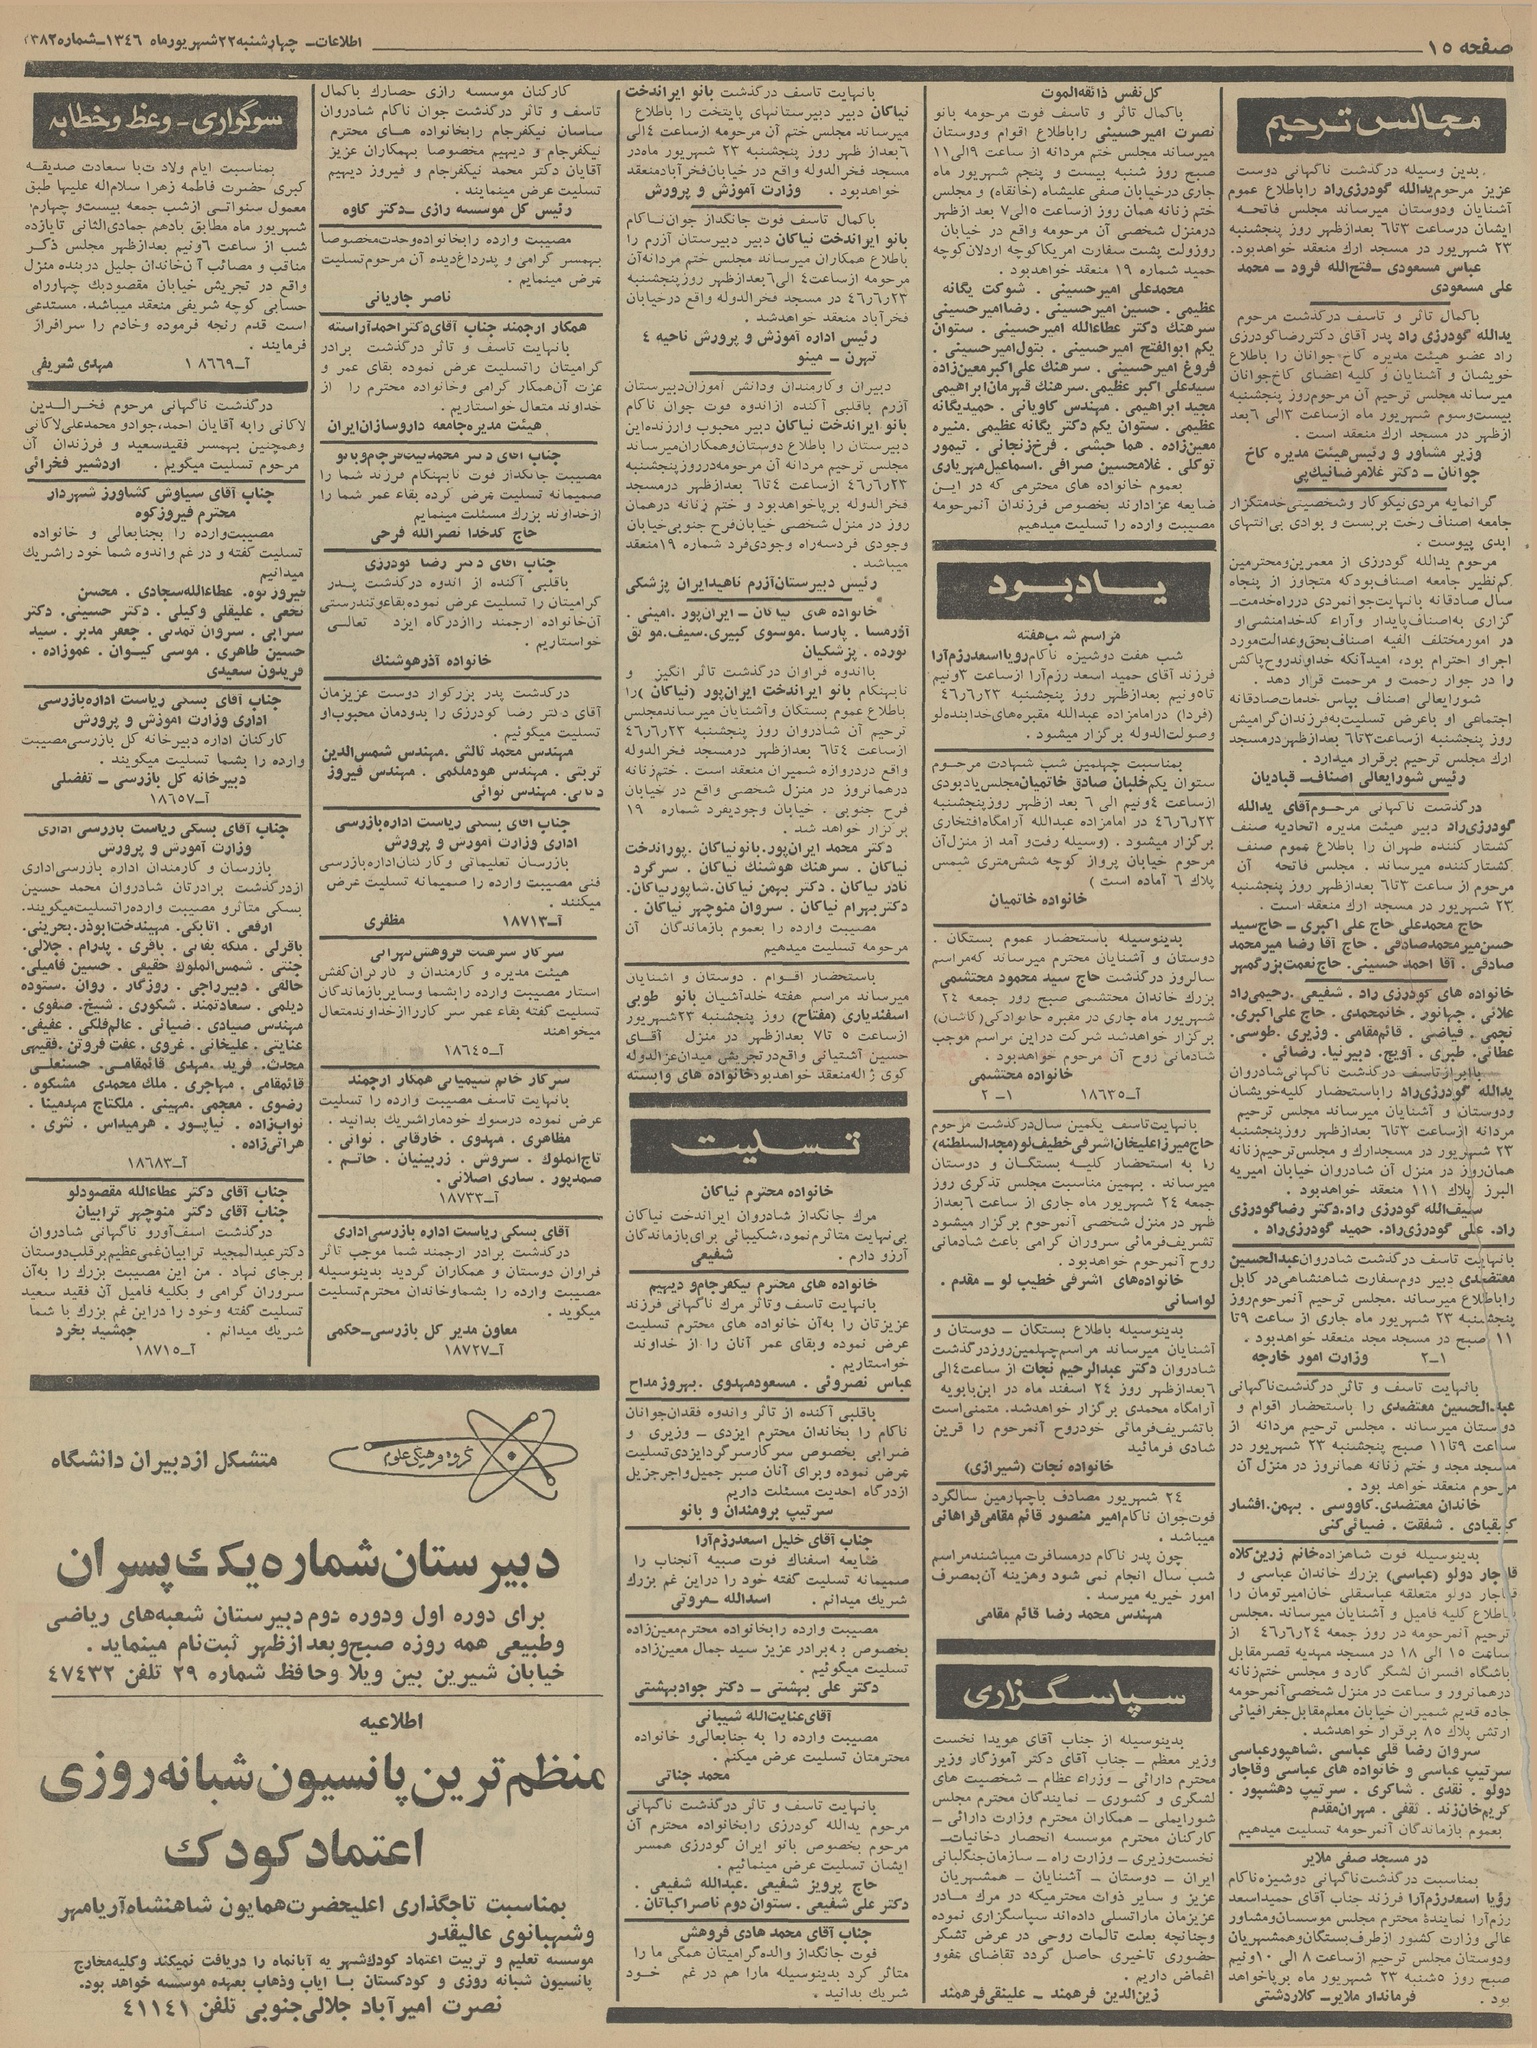 صفحه ۱۵
اطلاعات ـ چهارشنبه ۲۲ شهریور ماه ۱۳۴۶ ـ شماره
مجالس ترحیم
بدین وسیله درگذشت ناگهانی دوست
عزیز مرحوم یدالله گودرزی راد را باطلاع عموم
آشنایان ودوستان میرساند مجلس فاتحه
ایشان درساعت ۳ تا ۶ بعدازظهر روز پنجشنبه
۲۳ شهریور در مسجد ارك منعقد خواهدبود.
عباس مسعودی ـ فتح‌الله فرود ـ محمد
علی مسعودی
باکمال تاثر و تاسف درگذشت مرحوم
یدالله گودرزی راد پدر آقای دکتر رضا گودرزی
راد عضو هیئت مدیره کاخ جوانان را باطلاع
خویشان و آشنایان و کلیه اعضای کاخ جوانان
میرساند مجلس ترحیم آن مرحوم روز پنجشنبه
بیست وسوم شهریور ماه ازساعت ۳ الی ۶ بعد
ازظهر در مسجد ارك منعقد است .
وزیر مشاور و رئیس هیئت مدیره کاخ
جوانان ـ دکتر غلامرضا نیك پی
گرانمایه مردی نیکوکار وشخصیتی خدمتگزار
جامعه اصناف رخت بربست و بوادی بی‌انتهای
ابدی پیوست .
مرحوم یدالله گودرزی از معمرین ومحترمین
کم‌نظیر جامعه اصناف بود که متجاوز از پنجاه
سال صادقانه بانهایت جوانمردی درراه خدمت‌ـ
گزاری به‌اصناف پایدار وآراء کدخدامنشی او
در امور مختلف الفیه اصناف بحق وعدالت مورد
اجراو احترام بود، امیدآنکه خداوند روح پاکش
را در جوار رحمت و مرحمت قرار دهد .
شورایعالی اصناف بپاس خدمات صادقانه
اجتماعی او باعرض تسلیت به‌فرزندان گرامیش
روز پنجشنبه ازساعت ۳ تا ۶ بعدازظهر درمسجد
ارك مجلس ترحیم برقرار میدارد .
رئیس شورایعالی اصناف ـ قبادیان
درگذشت ناگهانی مرحوم آقای یدالله
گودرزی راد دبیر هیئت مدیره اتحادیه صنف
کشتار کننده طهران را باطلاع عموم صنف
کشتارکننده میرساند . مجلس فاتحه آن
مرحوم از ساعت ۳ تا ۶ بعدازظهر روز پنجشنبه
۲۳ شهریور در مسجد ارك منعقد است .
حاج محمدعلی حاج علی اکبری ـ حاج سید
حسن میرمحمدصادقی . حاج آقا رضا میرمحمد
صادقی . آقا احمد حسینی . حاج نعمت بزرگمهر
خانواده های گودرزی راد . شفیعی . رحیمی راد
علائی . جهانور . خانمحمدی . حاج علی اکبری .
نجمی . فیاضی . قائم‌مقامی . وزیری . طوسی .
عطائی . طبری . آویج . دبیرنیا . رضائی .
باابراز تاسف درگذشت ناگهانی شادروان
یدالله گودرزی راد را باستحضار کلیه خویشان
ودوستان و آشنایان میرساند مجلس ترحیم
مردانه ازساعت ۳ تا ۶ بعدازظهر روز پنجشنبه
۲۳ شهریور در مسجد ارك و مجلس ترحیم زنانه
همان روز در منزل آن شادروان خیابان امیریه
البرز پلاك ۱۱۱ منعقد خواهد بود .
سیف‌الله گودرزی راد . دکتر رضا گودرزی
راد . علی گودرزی راد . حمید گودرزی راد .
بانهایت تاسف درگذشت شادروان عبدالحسین
معتضدی دبیر دوم سفارت شاهنشاهی در کابل
را باطلاع میرساند . مجلس ترحیم آنمرحوم روز
پنجشنبه ۲۳ شهریور ماه جاری از ساعت ۹ تا
۱۱ صبح در مسجد مجد منعقد خواهدبود .
۱ـ۲ وزارت امور خارجه
بانهایت تاسف و تاثر درگذشت ناگهانی
عبدالحسین معتضدی را باستحضار اقوام و
دوستان میرساند . مجلس ترحیم مردانه از
ساعت ۹ تا ۱۱ صبح پنجشنبه ۲۳ شهریور در
مسجد مجد و ختم زنانه همانروز در منزل آن
مرحوم منعقد خواهد بود .
خاندان معتضدی . کاووسی . بهمن . افشار
کیقبادی . شفقت . ضیائی کنی
بدینوسیله فوت شاهزاده خانم زرین‌کلاه
قاجار دولو (عباسی) بزرك خاندان عباسی و
قاجار دولو متعلقه عباسقلی خان امیرتومان را
باطلاع کلیه فامیل و آشنایان میرساند . مجلس
ترحیم آنمرحومه در روز جمعه ۴۶ر۶ر۲۴ از
ساعت ۱۵ الی ۱۸ در مسجد مهدیه قصر مقابل
باشگاه افسران لشگر گارد و مجلس ختم زنانه
درهمانروز و ساعت در منزل شخصی آنمرحومه
جاده قدیم شمیران خیابان معلم مقابل جغرافیائی
ارتش پلاك ۸۵ برقرار خواهدشد .
سروان رضا قلی عباسی . شاهپور عباسی
سرتیپ عباسی و خانواده های عباسی وقاجار
دولو . نقدی . شاکری . سرتیپ دهشپور .
کریم خان زند . ثقفی . مهران مقدم
بعموم بازماندگان آنمرحومه تسلیت میدهیم
در مسجد صفی ملایر
بمناسبت درگذشت ناگهانی دوشیزه ناکام
رؤیا اسعدرزم‌آرا فرزند جناب آقای حمیداسعد
رزم‌آرا نمایندهٔ محترم مجلس موسسان ومشاور
عالی وزارت کشور ازطرف بستگان وهمشهریان
ودوستان مجلس ترحیم ازساعت ۸ الی ۱۰ ونیم
صبح روز ۵شنبه ۲۳ شهریور ماه برپاخواهد
بود . فرماندار ملایر ـ کلاردشتی
کل نفس ذائقةالموت
باکمال تاثر و تاسف فوت مرحومه بانو
نصرت امیرحسینی را باطلاع اقوام ودوستان
میرساند مجلس ختم مردانه از ساعت ۹ الی ۱۱
صبح روز شنبه بیست و پنجم شهریور ماه
جاری درخیابان صفی علیشاه (خانقاه) و مجلس
ختم زنانه همان روز از ساعت ۵ الی ۷ بعد ازظهر
درمنزل شخصی آن مرحومه واقع در خیابان
روزولت پشت سفارت امریکا کوچه اردلان کوچه
حمید شماره ۱۹ منعقد خواهدبود .
محمدعلی امیرحسینی . شوکت یگانه
عظیمی . حسین امیرحسینی . رضا امیرحسینی
سرهنك دکتر عطاءالله امیرحسینی . ستوان
یکم ابوالفتح امیرحسینی . بتول امیرحسینی .
فروغ امیرحسینی . سرهنك علی اکبر معین‌زاده
سید علی اکبر عظیمی . سرهنك قهرمان ابراهیمی
مجید ابراهیمی . مهندس کاویانی . حمید یگانه
عظیمی . ستوان یکم دکتر یگانه عظیمی . منیره
معین‌زاده . هما حبشی . فرخ زنجانی . تیمور
توکلی . غلامحسین صرافی . اسماعیل مهریاری
بعموم خانواده های محترمی که در این
ضایعه عزادارند بخصوص فرزندان آنمرحومه
مصیبت وارده را تسلیت میدهیم
یادبود
مراسم شب هفته
شب هفت دوشیزه ناکام رویا اسعدرزم‌آرا
فرزند آقای حمید اسعد رزم‌آرا ازساعت ۳ ونیم
تا ۵ ونیم بعدازظهر روز پنجشنبه ۴۶ر۶ر۲۳
(فردا) درامامزاده عبدالله مقبره‌های خدابنده‌لو
وصولت الدوله برگزار میشود .
بمناسبت چهلمین شب شهادت مرحوم
ستوان یکم خلبان صادق خاتمیان مجلس یادبودی
ازساعت ۴ ونیم الی ۶ بعد ازظهر روز پنجشنبه
۴۶ر۶ر۲۳ در امامزاده عبدالله آرامگاه افتخاری
برگزار میشود . (وسیله رفت و آمد از منزل آن
مرحوم خیابان پرواز کوچه شش‌متری شمیس
پلاك ۶ آماده است )
خانواده خاتمیان
بدینوسیله باستحضار عموم بستگان .
دوستان و آشنایان محترم میرساند که‌مراسم
سالروز درگذشت حاج سید محمود محتشمی
بزرك خاندان محتشمی صبح روز جمعه ۲۴
شهریور ماه جاری در مقبره خانوادگی (کاشان)
برگزار خواهدشد شرکت دراین مراسم موجب
شادمانی روح آن مرحوم خواهدبود .
خانواده محتشمی
آـ۱۸۶۳۵ ۱ـ۲
بانهایت تاسف یکمین سال درگذشت مرحوم
حاج میرزاعلیخان اشرفی خطیف لو (مجدالسلطنه)
را به استحضار کلیه بستگان و دوستان
میرساند . بهمین مناسبت مجلس تذکری روز
جمعه ۲۴ شهریور ماه جاری از ساعت ۶ بعداز
ظهر در منزل شخصی آنمرحوم برگزار میشود
تشریف فرمائی سروران گرامی باعث شادمانی
روح آنمرحوم خواهدبود .
خانواده‌های اشرفی خطیب لو ـ مقدم .
لواسانی
بدینوسیله باطلاع بستگان ـ دوستان و
آشنایان میرساند مراسم چهلمین روز درگذشت
شادروان دکتر عبدالرحیم نجات از ساعت ۴ الی
۶ بعدازظهر روز ۲۴ اسفند ماه در ابن‌بابویه
آرامگاه محمدی برگزار خواهدشد . متمنی است
باتشریف فرمائی خودروح آنمرحوم را قرین
شادی فرمائید
خانواده نجات (شیرازی)
۲۴ شهریور مصادف باچهارمین سالگرد
فوت‌جوان ناکام امیر منصور قائم مقامی فراهانی
میباشد .
چون پدر ناکام درمسافرت میباشند مراسم
شب سال انجام نمی شود وهزینه آن بمصرف
امور خیریه میرسد .
مهندس محمد رضا قائم مقامی
سپاسگزاری
بدینوسیله از جناب آقای هویدا نخست
وزیر معظم ـ جناب آقای دکتر آموزگار وزیر
محترم دارائی ـ وزراء عظام ـ شخصیت های
لشگری و کشوری ـ نمایندگان محترم مجلس
شورایملی ـ همکاران محترم وزارت دارائی ـ
کارکنان محترم موسسه انحصار دخانیات ـ
نخست‌وزیری ـ وزارت راه ـ سازمان جنگلبانی
ایران ـ دوستان ـ آشنایان ـ همشهریان
عزیز و سایر ذوات محترمیکه در مرك مادر
عزیزمان ماراتسلی داده‌اند سپاسگزاری نموده
وچنانچه بعلت تالمات روحی در عرض تشکر
حضوری تاخیری حاصل گردد تقاضای عفوو
اغماض داریم .
زین‌الدین فرهمند ـ علینقی فرهمند
بانهایت تاسف درگذشت بانو ایراندخت
نیاکان دبیر دبیرستانهای پایتخت را باطلاع
میرساند مجلس ختم آن مرحومه ازساعت ۴ الی
۶ بعداز ظهر روز پنجشنبه ۲۳ شهریور ماه در
مسجد فخرالدوله واقع در خیابان فخرآباد منعقد
خواهدبود . وزارت آموزش و پرورش
باکمال تاسف فوت جانگداز جوان ناکام
بانو ایراندخت نیاکان دبیر دبیرستان آزرم را
باطلاع همکاران میرساند مجلس ختم مردانه آن
مرحومه ازساعت ۴ الی ۶ بعدازظهر روز پنجشنبه
۴۶ر۶ر۲۳ در مسجد فخرالدوله واقع درخیابان
فخرآباد منعقد خواهدشد .
رئیس اداره آموزش و پرورش ناحیه ۴
تهرن ـ مینو
دبیران وکارمندان ودانش آموزان دبیرستان
آزرم باقلبی آکنده ازاندوه فوت جوان ناکام
بانو ایراندخت نیاکان دبیر محبوب وارزنده این
دبیرستان را باطلاع دوستان وهمکاران میرساند
مجلس ترحیم مردانه آن مرحومه درروز پنجشنبه
۴۶ر۶ر۲۳ ازساعت ۴ تا ۶ بعدازظهر درمسجد
فخرالدوله برپاخواهدبود و ختم زنانه درهمان
روز در منزل شخصی خیابان فرح جنوبی خیابان
وجودی فردسه‌راه وجودی فرد شماره ۱۹ منعقد
میباشد .
رئیس دبیرستان آزرم ناهید ایران پزشکی
خانواده های نیاکان ـ ایران‌پور . امینی .
آذرمسا . پارسا . موسوی کبیری . سیف . موثق
نورده . پزشکیان
بااندوه فراوان درگذشت تاثر انگیز و
نابهنگام بانو ایراندخت ایران‌پور (نیاکان) را
باطلاع عموم بستگان وآشنایان میرساند مجلس
ترحیم آن شادروان روز پنجشنبه ۴۶ر۶ر۲۳
ازساعت ۴ تا ۶ بعدازظهر درمسجد فخرالدوله
واقع دردروازه شمیران منعقد است . ختم زنانه
درهمانروز در منزل شخصی واقع در خیابان
فرح جنوبی . خیابان وجودیفرد شماره ۱۹
برگزار خواهد شد .
دکتر محمد ایران‌پور . بانو نیاکان . پوراندخت
نیاکان . سرهنك هوشنك نیاکان . سرگرد
نادر نیاکان . دکتر بهمن نیاکان . شاپور نیاکان .
دکتر بهرام نیاکان . سروان منوچهر نیاکان .
مصیبت وارده را بعموم بازماندگان آن
مرحومه تسلیت میدهیم
باستحضار اقوام . دوستان و آشنایان
میرساند مراسم هفته خلدآشیان بانو طوبی
اسفندیاری (مفتاح) روز پنجشنبه ۲۳ شهریور
ازساعت ۵ تا ۷ بعدازظهر در منزل آقای
حسین آشتیانی واقع درتجریش میدان عزالدوله
کوی ژاله منعقد خواهدبود خانواده های وابسته
تسلیت
خانواده محترم نیاکان
مرك جانگداز شادروان ایراندخت نیاکان
بی‌نهایت متاثرم نمود، شکیبائی برای بازماندگان
آرزو دارم . شفیعی
خانواده های محترم نیکفرجام و دیهیم
بانهایت تاسف وتاثر مرك ناگهانی فرزند
عزیزتان را به‌آن خانواده های محترم تسلیت
عرض نموده وبقای عمر آنان را از خداوند
خواستاریم .
عباس نصروئی . مسعودمهدوی . بهروز مداح
باقلبی آکنده از تاثر واندوه فقدان جوانان
ناکام را بخاندان محترم ایزدی ـ وزیری و
ضرابی بخصوص سرکارسرگرد ایزدی تسلیت
عرض نموده وبرای آنان صبر جمیل واجر جزیل
ازدرگاه احدیت مسئلت داریم
سرتیپ برومندان و بانو
جناب آقای خلیل اسعدرزم‌آرا
ضایعه اسفناك فوت صبیه آنجناب را
صمیمانه تسلیت گفته خود را دراین غم بزرك
شریك میدانم . اسدالله ـ مروتی
مصیبت وارده را بخانواده محترم معین‌زاده
بخصوص به‌برادر عزیز سید جمال معین‌زاده
تسلیت میگوئیم .
دکتر علی بهشتی ـ دکتر جواد بهشتی
آقای عنایت‌الله شیبانی
مصیبت وارده را به جنابعالی و خانواده
محترمتان تسلیت عرض میکنم .
محمد جنانی
بانهایت تاسف و تاثر درگذشت ناگهانی
مرحوم یدالله گودرزی را بخانواده محترم آن
مرحوم بخصوص بانو ایران گودرزی همسر
ایشان تسلیت عرض مینمائیم .
حاج پرویز شفیعی . عبدالله شفیعی .
دکتر علی شفیعی . ستوان دوم ناصر اکباتان .
جناب آقای محمد هادی فروهش
فوت جانگداز والده گرامیتان همگی ما را
متاثر کرد بدینوسیله مارا هم در غم خود
شریك بدانید .
کارکنان موسسه رازی حصارك باکمال
تاسف و تاثر درگذشت جوان ناکام شادروان
ساسان نیکفرجام را بخانواده های محترم
نیکفرجام و دیهیم مخصوصا بهمکاران عزیز
آقایان دکتر محمد نیکفرجام و فیروز دیهیم
تسلیت عرض مینمایند .
رئیس کل موسسه رازی ـ دکتر کاوه
مصیبت وارده را بخانواده وحدت مخصوصا
بهمسر گرامی و پدرداغ‌دیده آن مرحوم تسلیت
عرض مینمایم .
ناصر جاریانی
همکار ارجمند جناب آقای دکتر احمد آراسته
بانهایت تاسف و تاثر درگذشت برادر
گرامیتان را تسلیت عرض نموده بقای عمر و
عزت آن همکار گرامی وخانواده محترم را از
خداوند متعال خواستاریم .
هیئت مدیره جامعه داروسازان ایران
مصیبت جانگداز فوت نابهنگام فرزند شما را
صمیمانه تسلیت عرض کرده بقاء عمر شما را
ازخداوند بزرك مسئلت مینمایم
حاج کدخدا نصرالله فرحی
جناب آقای دکتر رضا گودرزی
باقلبی آکنده از اندوه درگذشت پدر
گرامیتان را تسلیت عرض نموده بقاء وتندرستی
آن خانواده ارجمند را ازدرگاه ایزد تعالی
خواستاریم .
خانواده آذرهوشنك
درگذشت پدر بزرگوار دوست عزیزمان
آقای دکتر رضا گودرزی را بدودمان محبوب او
تسلیت میگوئیم .
مهندس محمد ثالثی . مهندس شمس‌الدین
تربتی . مهندس هودملکمی . مهندس فیروز
مهندس نوائی .
جناب آقای بسکی ریاست اداره بازرسی
اداری وزارت آموزش و پرورش
بازرسان تعلیماتی وکارکنان اداره بازرسی
فنی مصیبت وارده را صمیمانه تسلیت عرض
میکنند .
آـ۱۸۷۱۳ مظفری
سرکار سرهنك فروهش تهرانی
هیئت مدیره و کارمندان و کارگران کفش
استار مصیبت وارده را بشما وسایر بازماندگان
تسلیت گفته بقاء عمر سر کار را ازخداوند متعال
میخواهند
آـ۱۸۶۴۵
سرکار خانم شیمیائی همکار ارجمند
بانهایت تاسف مصیبت وارده را تسلیت
عرض نموده درسوك خودمارا شریك بدانید .
مظاهری . مهدوی . خارقانی . نوائی .
تاج‌الملوك . سروش . زربینیان . حاتم .
صمدپور . ساری اصلانی .
آـ۱۸۷۳۳
آقای بسکی ریاست اداره بازرسی اداری
درگذشت برادر ارجمند شما موجب تاثر
فراوان دوستان و همکاران گردید بدینوسیله
مصیبت وارده را بشما وخاندان محترم تسلیت
میگوید .
معاون مدیر کل بازرسی ـ حکمی
آـ۱۸۷۲۷
سوگواری ـ وعظ وخطابه
بمناسبت ایام ولادت باسعادت صدیقه
کبری حضرت فاطمه زهرا سلام‌اله علیها طبق
معمول سنواتی ازشب جمعه بیست و چهارم
شهریور ماه مطابق بادهم جمادی‌الثانی تایازده
شب از ساعت ۶ ونیم بعدازظهر مجلس ذکر
مناقب و مصائب آن خاندان جلیل در بنده منزل
واقع در تجریش خیابان مقصودبك چهارراه
حسابی کوچه شریفی منعقد میباشد . مستدعی
است قدم رنجه فرموده وخادم را سرافراز
فرمایند .
آـ۱۸۶۶۹ مهدی شریفی
درگذشت ناگهانی مرحوم فخرالدین
لاکانی را به آقایان احمد، جوادو محمدعلی لاکانی
وهمچنین بهمسر فقید سعید و فرزندان آن
مرحوم تسلیت میگویم . اردشیر فخرائی
جناب آقای سیاوش کشاورز شهردار
محترم فیروزکوه
مصیبت وارده را بجنابعالی و خانواده
تسلیت گفته و در غم واندوه شما خود راشریك
میدانیم
فیروز نوه . عطاءالله سجادی . محسن
نخعی . علیقلی وکیلی . دکتر حسینی . دکتر
سرابی . سروان تمدنی . جعفر مدبر . سید
حسین طاهری . موسی کیوان . عموزاده .
فریدون سعیدی
جناب آقای بسکی ریاست اداره بازرسی
اداری وزارت آموزش و پرورش
کارکنان اداره دبیرخانه کل بازرسی مصیبت
وارده را بشما تسلیت میگویند .
دبیرخانه کل بازرسی ـ تفضلی
آـ۱۸۶۵۷
جناب آقای بسکی ریاست بازرسی اداری
وزارت آموزش و پرورش
بازرسان و کارمندان اداره بازرسی اداری
ازدرگذشت برادرتان شادروان محمد حسین
بسکی متاثرو مصیبت وارده را تسلیت میگویند .
ارفعی . اتابکی . مهیندخت ابوذر . بحرینی .
باقرلی . ملکه بقائی . باقری . پدرام . جلالی .
جنتی . شمس‌الملوك حقیقی . حسین فامیلی .
خالقی . دبیرراجی . روزگار . روان . ستوده
دیلمی . سعادتمند . شکوری . شیخ . صفوی .
مهندس صیادی . ضیائی . عالم‌فلکی . عفیفی .
عنایتی . علیخانی . غروی . عفت فروتن . فقیهی
محدث . فرید . مهدی قائمقامی . حسنعلی
قائمقامی . مهاجری . ملك محمدی مشکوه .
رضوی . معجمی . مهینی . ملکتاج مهدمینا .
نواب‌زاده . نیاپور . هرمیداس . نثری .
هراتی‌زاده .
آـ۱۸۶۸۳
جناب آقای دکتر عطاءالله مقصودلو
جناب آقای دکتر منوچهر ترابیان
درگذشت اسف‌آورو ناگهانی شادروان
دکتر عبدالمجید ترابیان غمی عظیم برقلب دوستان
برجای نهاد . من این مصیبت بزرك را به‌آن
سروران گرامی و بکلیه فامیل آن فقید سعید
تسلیت گفته وخود را دراین غم بزرك با شما
شریك میدانم . جمشید بخرد
آـ۱۸۷۱۵
گروه فرهنگی علوم
متشکل از دبیران دانشگاه
دبیرستان شماره یك پسران
برای دوره اول ودوره دوم دبیرستان شعبه‌های ریاضی
وطبیعی همه روزه صبح وبعد ازظهر ثبت‌نام مینماید .
خیابان شیرین بین ویلا وحافظ شماره ۲۹ تلفن ۴۷۴۳۲
اطلاعیه
منظم‌ترین پانسیون شبانه‌روزی
اعتماد کودك
بمناسبت تاجگذاری اعلیحضرت همایون شاهنشاه آریامهر
وشهبانوی عالیقدر
موسسه تعلیم و تربیت اعتماد کودك شهریه آبانماه را دریافت نمیکند وکلیه مخارج
پانسیون شبانه روزی و کودکستان با ایاب وذهاب بعهده موسسه خواهد بود.
نصرت امیرآباد جلالی جنوبی تلفن ۴۱۱۴۱